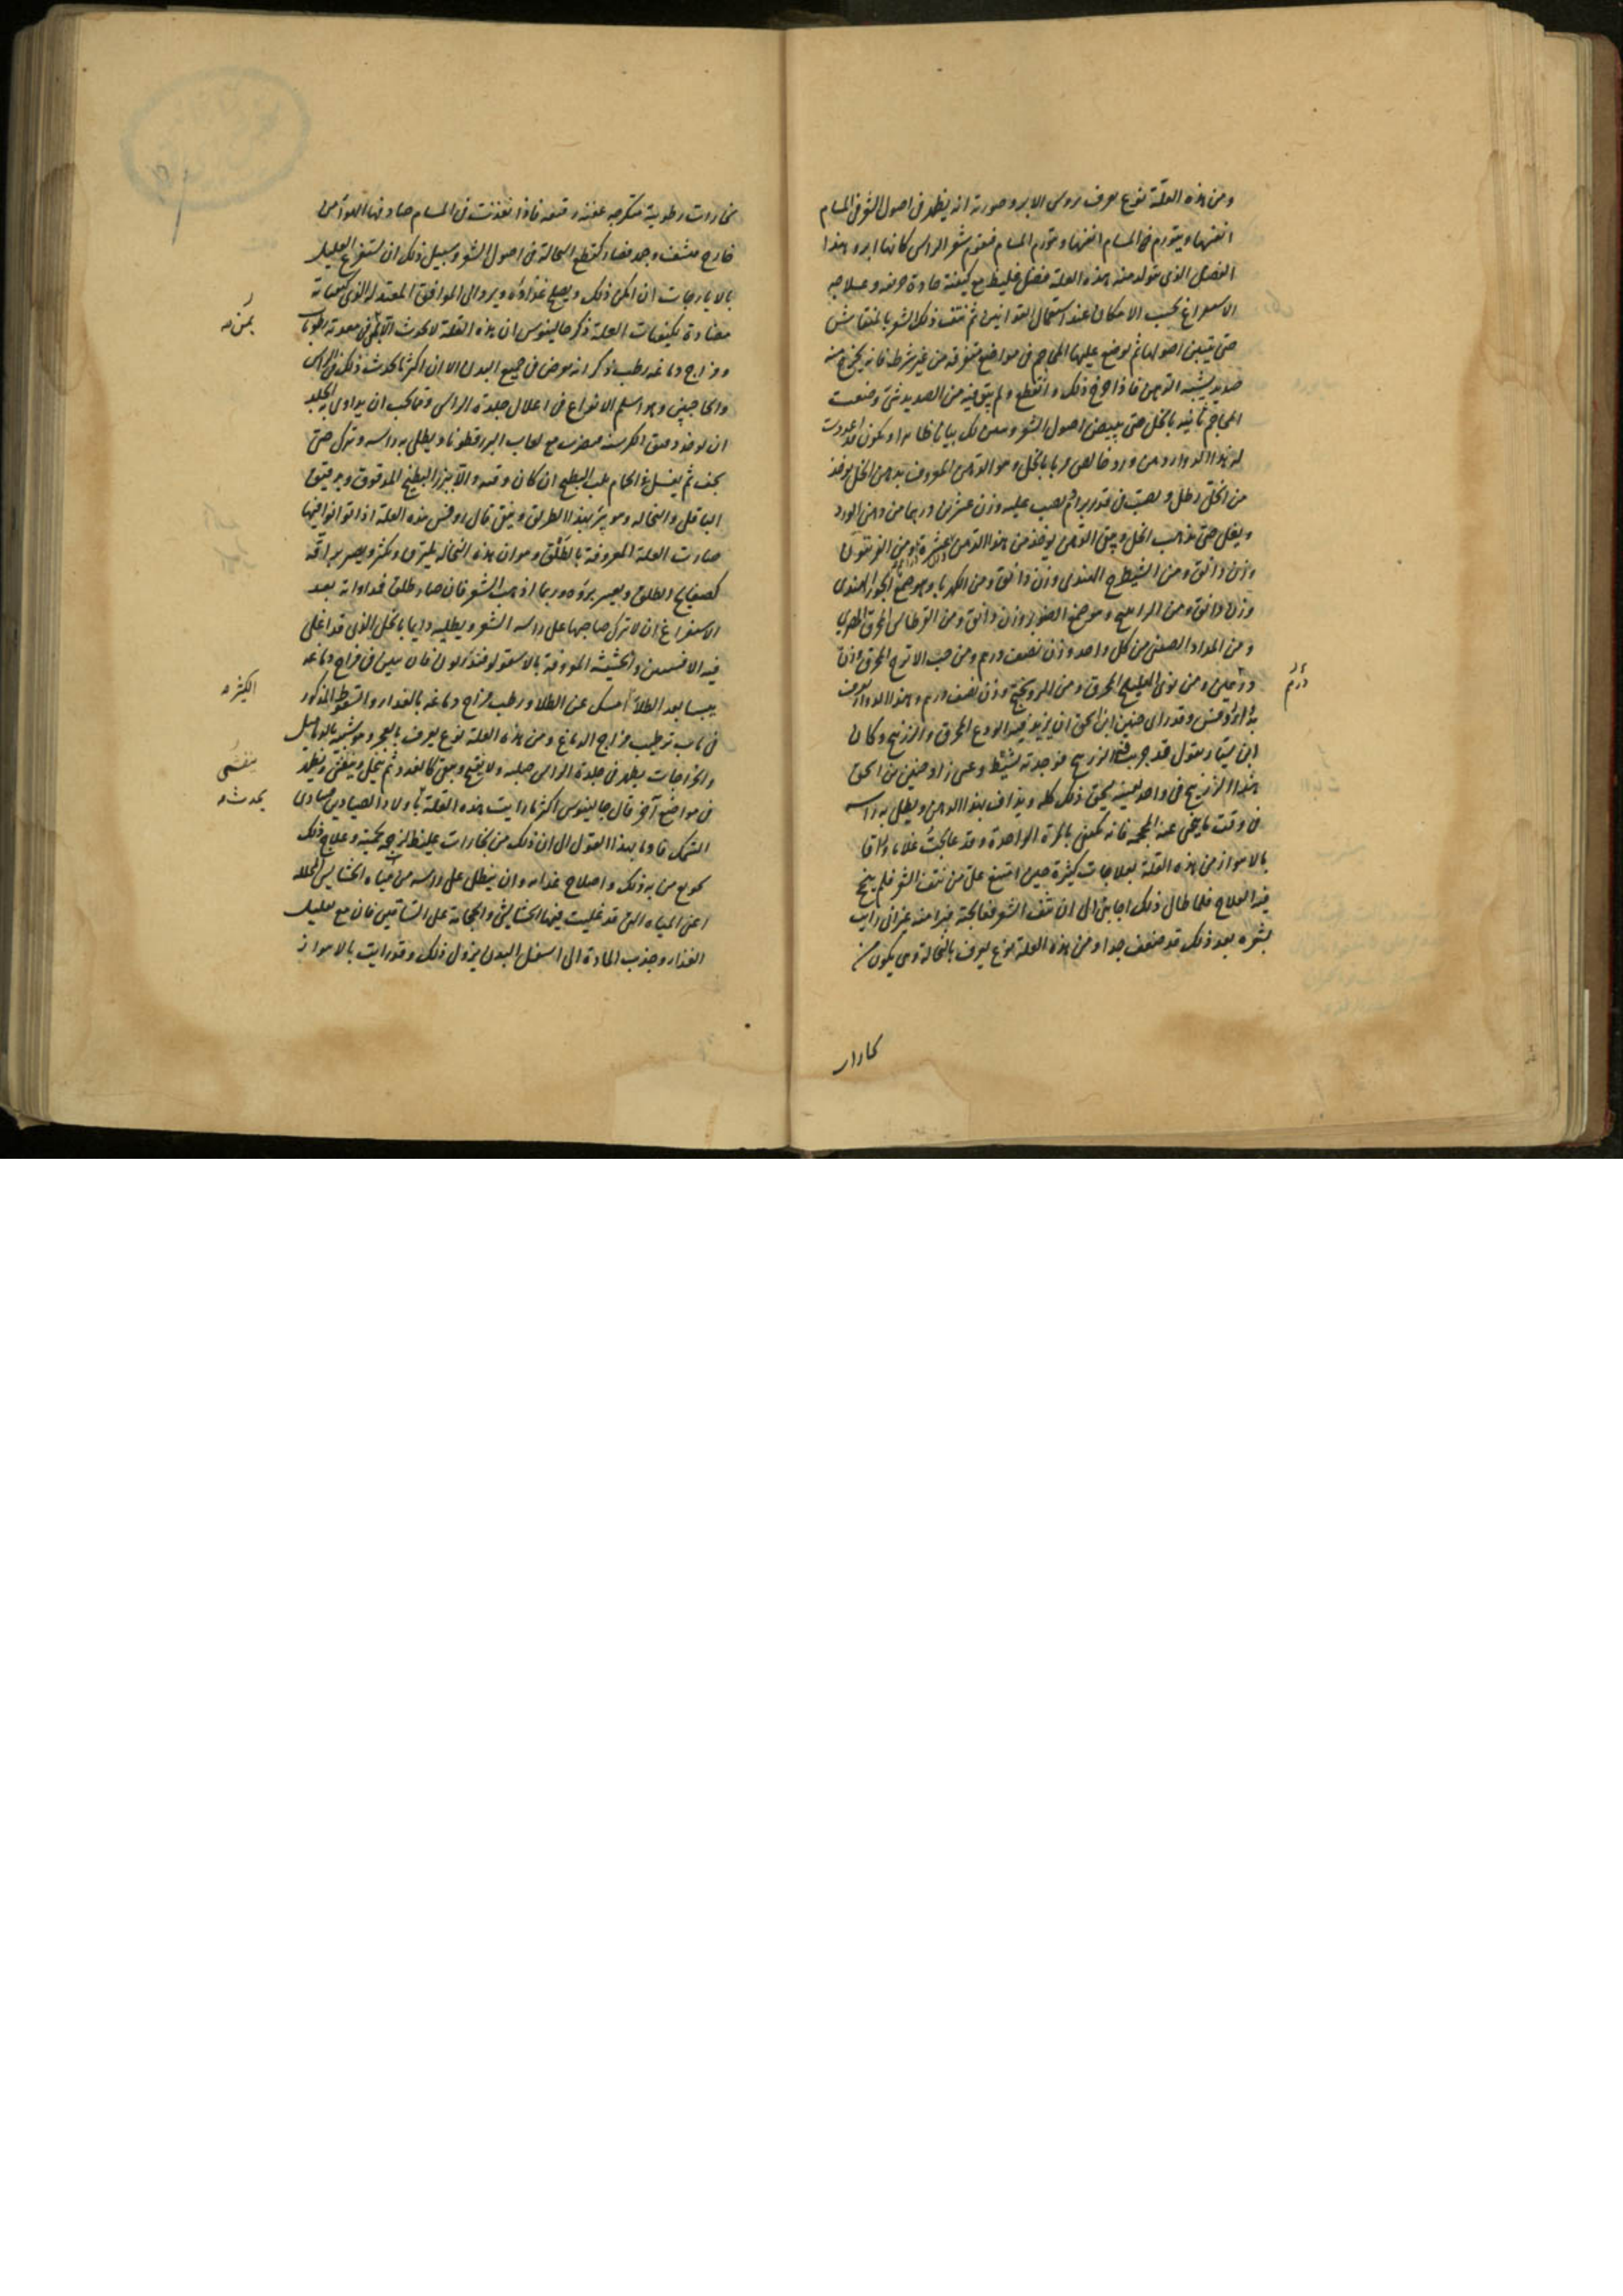 ومن هذه العلة نوع يعرف بروس الابر وصورته انه يظهر في اصول الشعر في المسام
انفسها ويتورم في المسام انفسها وتورم المسام فيقوم شعر الراس كانها ابر وهذا
الفضل الذي يتولد منه هذه العلة فضل غليظ مع كيفية حادة حريفة وعلاجه
الاستفراغ بحسب الامكان عند استعمال القوانين ثم نتف ذلك الشعر بالمنقاش
حتى يتبين اصولها ثم يوضع عليها المحاجم في مواضع متفرقة من غير شرط فانه يخرج منه
صديد يشبه الدهن فاذا خرج ذلك وانقطع ولم يبق فيه من الصديد شي وضعت
المحاجم ثانية بالخل حتى يبيض اصول الشعر
لهذا الدوا دهن ورد خالص مربا بالخل وهو الدهن المعروف بدهن الخل يوخذ
من الخل رطل ويصب في قدر برام ثم يصب عليه وزن عشرين درهما من دهن الورد
ويغلى حتى يذهب الخل ويبقى الدهن يوخذ من هذا الدهن عشرة ومن الفربيون
وزن دانق ومن الشيطرج الهندي وزن دانق ومن الكهربا وهو صمغ الجوز الهندي
وزن دانق ومن الراتينج وهو صمغ الصنوبر وزن دانق ومن القرطاس المحرق المصري
ومن المداد الصيني من كل واحد وزن نصف درهم ومن حب الاترج المحرق وزن
درهمين ومن نوى الهليلج المحرق ومن وزن نصف درهم وهذا الدوا يعرف
وقد راى حنين ابن اسحق ان يزيد فيه الودع المحرق والزرنيخ وكان
ابن سيار يقول قد جربت الزرنيخ فوجدته يشيط وعى زاد حنين بن اسحق
هذا الزرنيخ في واحد بعينه يسحق ذلك كله ويداف بهذا الدهن ويطلى به راسه
في وقت ما ينحى عنه المحجمة فانه يكفي بالمرة الواحدة وقد عالجت غلاما وراقا
بالاهواز من هذه العلة بعلاجات كثيرة حين امتنع علي من نتف الشعر فلم ينجح
فيه العلاج فلما طال ذلك اجابني الى ان نتف الشعر فعالجته فبرا منه غير اني رايت
بشره بعد ذلك قد ضعف جدا ومن هذه العلة نوع يعرف بالنخالة وهي يكون من
درهم
بخارات رطوبية متكرجة عفنة رقيقة فاذا نفذت في المسام صادفها الهوا من
خارج فنشفت وجمد فصار كقطع النخالة في اصول الشعر وسبيل ذلك ان يستفرغ العليل
بالايارجات ان امكن ذلك ويصلح غذاؤه ويرد الى الموافق المعتدل الذي كيفياته
مضادة لكيفيات العلة ذكر جالينوس ان هذه العلة لا تحدث الا لمن في معدته رطوبات
ومزاج دماغه رطب وذكر انه يعرض في جميع البدن الا ان اكثر ما يحدث ذلك في الراس
والحاجبين وهو اسلم الانواع في اعلال جلدة الراس ومما يجب ان يداوى به الجلد
ان يوخذ دقيق الكرسنة فيضرب مع لعاب البزرقطونا ويطلى به راسه ويترك حتى
يجف ثم يغسل في الحمام بلب البطيخ ان كان وقته والا ببزر البطيخ المدقوق ودقيق
الباقلى والنخالة وهو يبرا بهذا الطريق وينقى قال روفس هذه العلة اذا توانوا فيها
صارت العلة المعروفة بالطلق وهو ان هذه النخالة يلتزق ويكثر ويصير براقة
كصفايح الطلق ويعسر برؤه وربما اذهب الشعر فان صار طلقا فمداواته بعد
الاستفراغ ان لا يترك صاحبها على راسه الشعر ويطليه دايما بالخل الذي قد اغلى
فيه الافسنتين والحشيشة المعروفة بالاسقولوفندريون فان تبين في مزاج دماغه
يبسا بعد الطلا امسك عن الطلا ورطب مزاج دماغه بالغذا والسعوط المذكور
في باب ترطيب مزاج الدماغ ومن هذه العلة نوع يعرف بالعجر وهو يشبه بالدماميل
والخراجات يظهر في جلدة الراس صلبة ولا يفتح ويبقى كالغدد ثم ينحل وينفش ويظهر
في مواضع آخر قال جالينوس اكثر ما رايت هذه العلة باولاد الصيادين صيادي
السمك فاومأ بهذا القول الى ان ذلك من بخارات غليظ لزجة لحمية وعلاج ذلك
تجويع من به ذلك واصلاح غذائه وان ينطل على راسه من مياه الحشايش المحللة
اعني المياه التي قد غليت فيها الحشايش والحجامة على الساقين فان مع تقليل
الغذا وجذب المادة الى اسفل البدن يزول ذلك وقد رايت بالاهواز